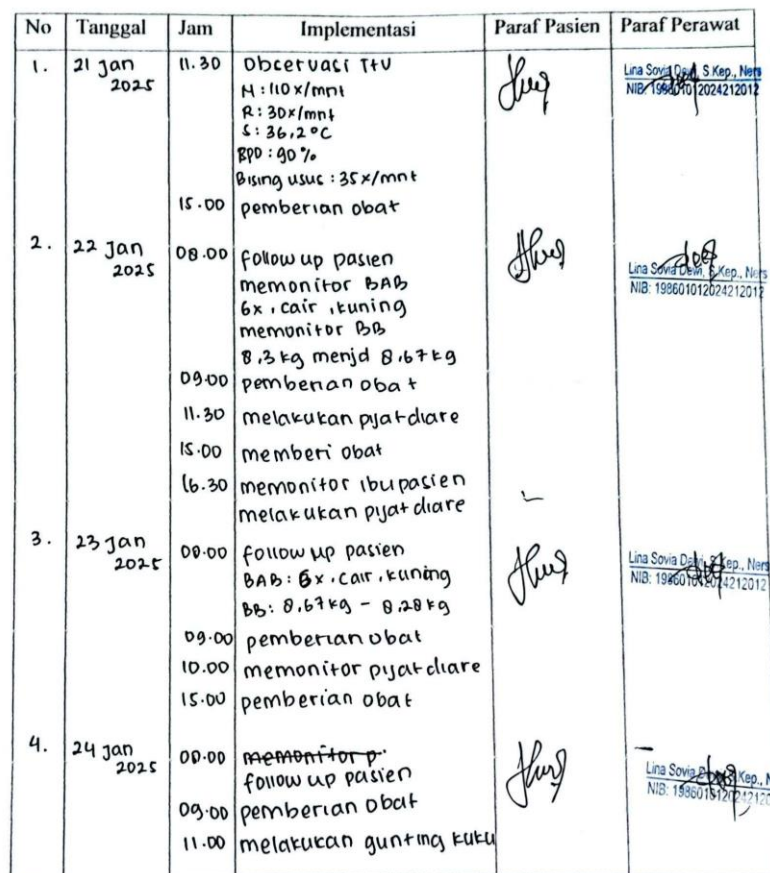 No Tanggal Jam Implementasi Paraf Pasien Paraf Perawat
1. 21 Jan 11.30 Observasi TTV
2025 N : 110 x/mnt
R : 30x/mnt
S : 36,2°C
SPO : 90 %
Bising usus : 35 x/mnt
Lina Sovia Dewi, S.Kep., Ners
NIB: 198601012024212012
15.00 pemberian obat
2. 22 Jan 08.00 follow up pasien
2025 memonitor BAB
6x, cair, kuning
memonitor BB
8,3 kg menjd 8,67 kg
Lina Sovia Dewi, S.Kep., Ners
NIB: 198601012024212012
09.00 pemberian obat
11.30 melakukan pijat diare
15.00 memberi obat
16.30 memonitor ibu pasien
melakukan pijat diare
3. 23 Jan 08.00 follow up pasien
2025 BAB : 6x, cair, kuning
BB : 8,67 kg - 8,28 kg
Lina Sovia Dewi, S.Kep., Ners
NIB: 198601012024212012
09.00 pemberian obat
10.00 memonitor pijat diare
15.00 pemberian obat
4. 24 Jan 08.00 memonitor p.
2025 follow up pasien
Lina Sovia Kep., N
NIB: 1986010120242120
09.00 pemberian obat
11.00 melakukan gunting kuku